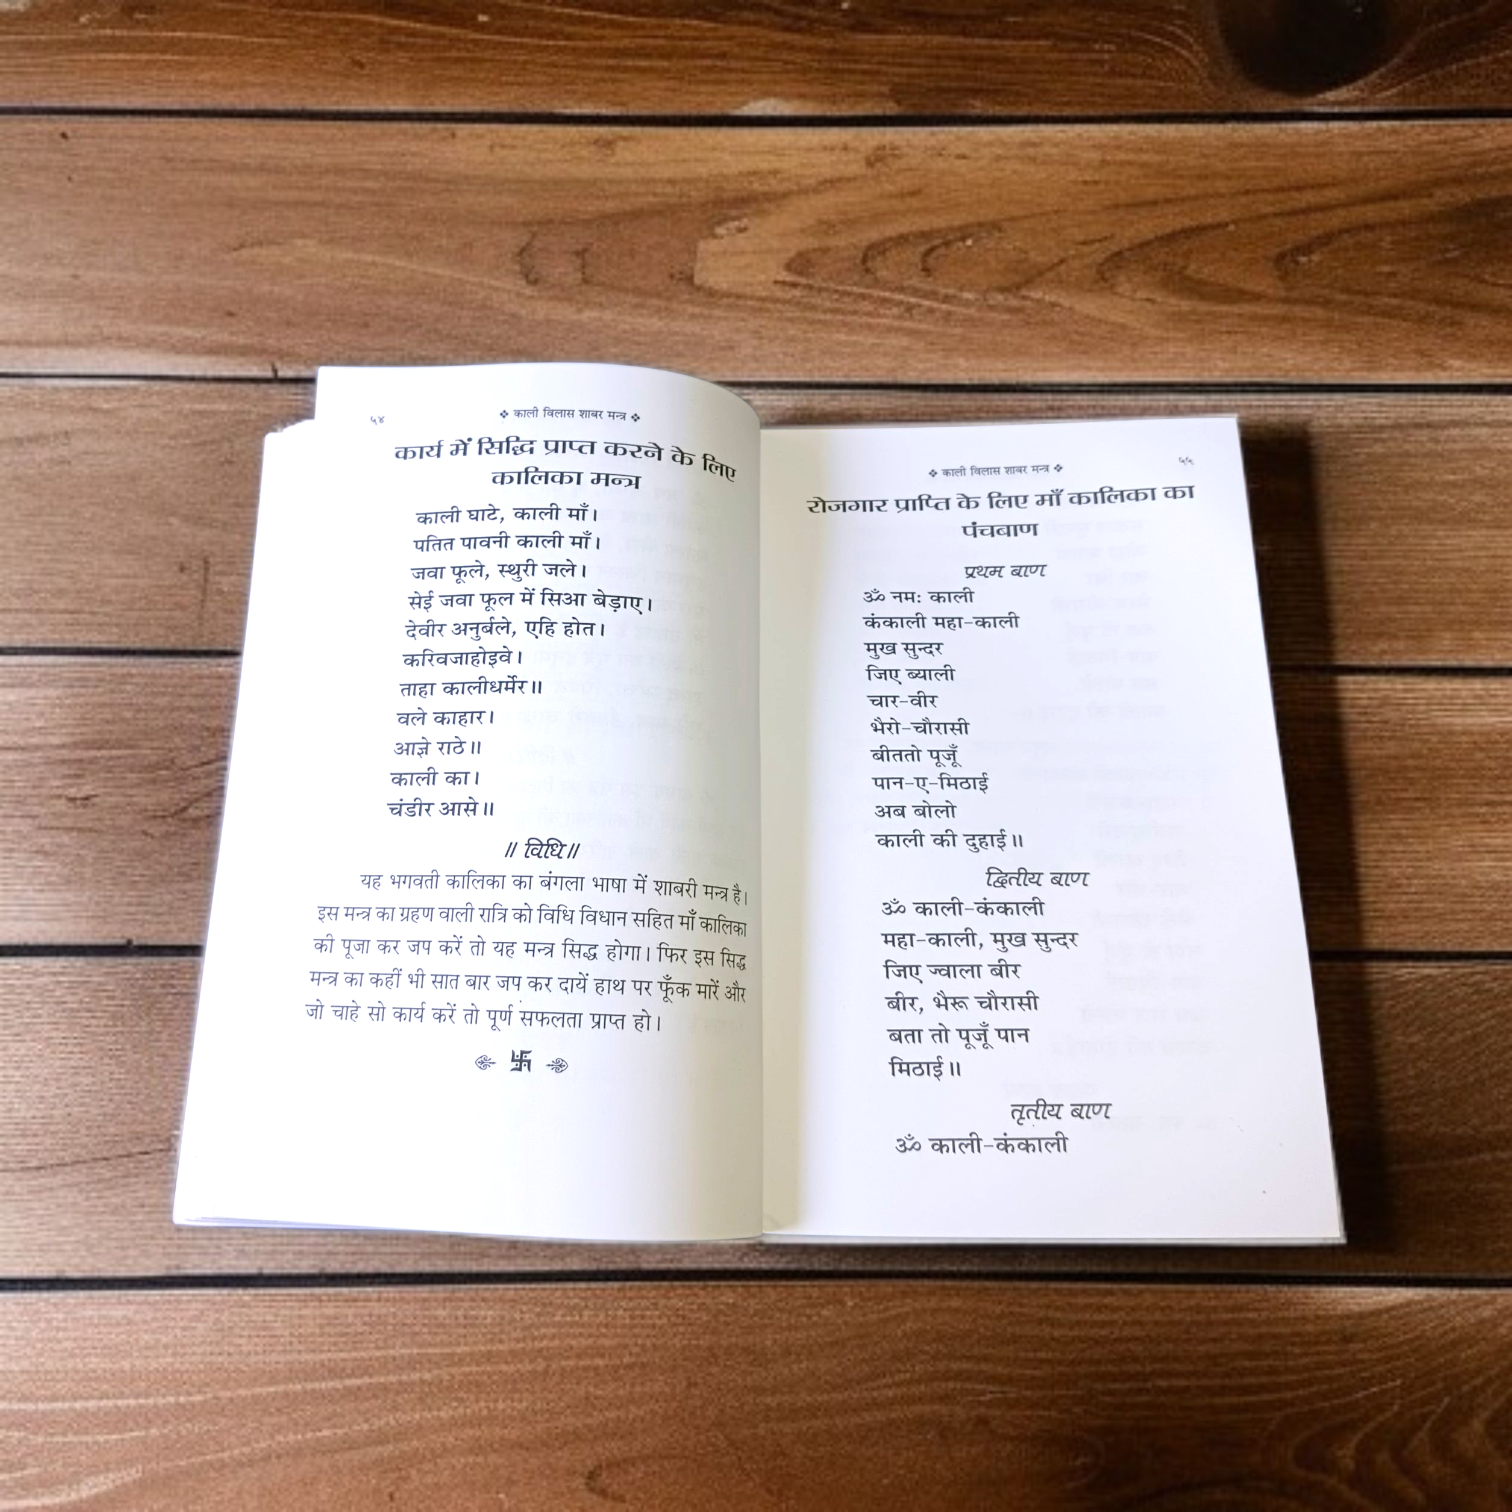 ५४
❖ काली विलास शाबर मन्त्र ❖
कार्य में सिद्धि प्राप्त करने के लिए
कालिका मन्त्र
काली घाटे, काली माँ।
पतित पावनी काली माँ।
जवा फूले, स्थुरी जले।
सेई जवा फूल में सिआ बेड़ाए।
देवीर अनुर्बले, एहि होत।
करिवजाहोइवे।
ताहा कालीधर्मेर॥
वले काहार।
आज्ञे राठे॥
काली का।
चंडीर आसे॥
॥ विधि॥
यह भगवती कालिका का बंगला भाषा में शाबरी मन्त्र है।
इस मन्त्र का ग्रहण वाली रात्रि को विधि विधान सहित माँ कालिका
की पूजा कर जप करें तो यह मन्त्र सिद्ध होगा। फिर इस सिद्ध
मन्त्र का कहीं भी सात बार जप कर दायें हाथ पर फूँक मारें और
जो चाहे सो कार्य करें तो पूर्ण सफलता प्राप्त हो।
❖ काली विलास शाबर मन्त्र ❖
५५
रोजगार प्राप्ति के लिए माँ कालिका का
पंचबाण
प्रथम बाण
ॐ नमः काली
कंकाली महा-काली
मुख सुन्दर
जिए ब्याली
चार-वीर
भैरो-चौरासी
बीततो पूजूँ
पान-ए-मिठाई
अब बोलो
काली की दुहाई॥
द्वितीय बाण
ॐ काली-कंकाली
महा-काली, मुख सुन्दर
जिए ज्वाला बीर
बीर, भैरू चौरासी
बता तो पूजूँ पान
मिठाई॥
तृतीय बाण
ॐ काली-कंकाली